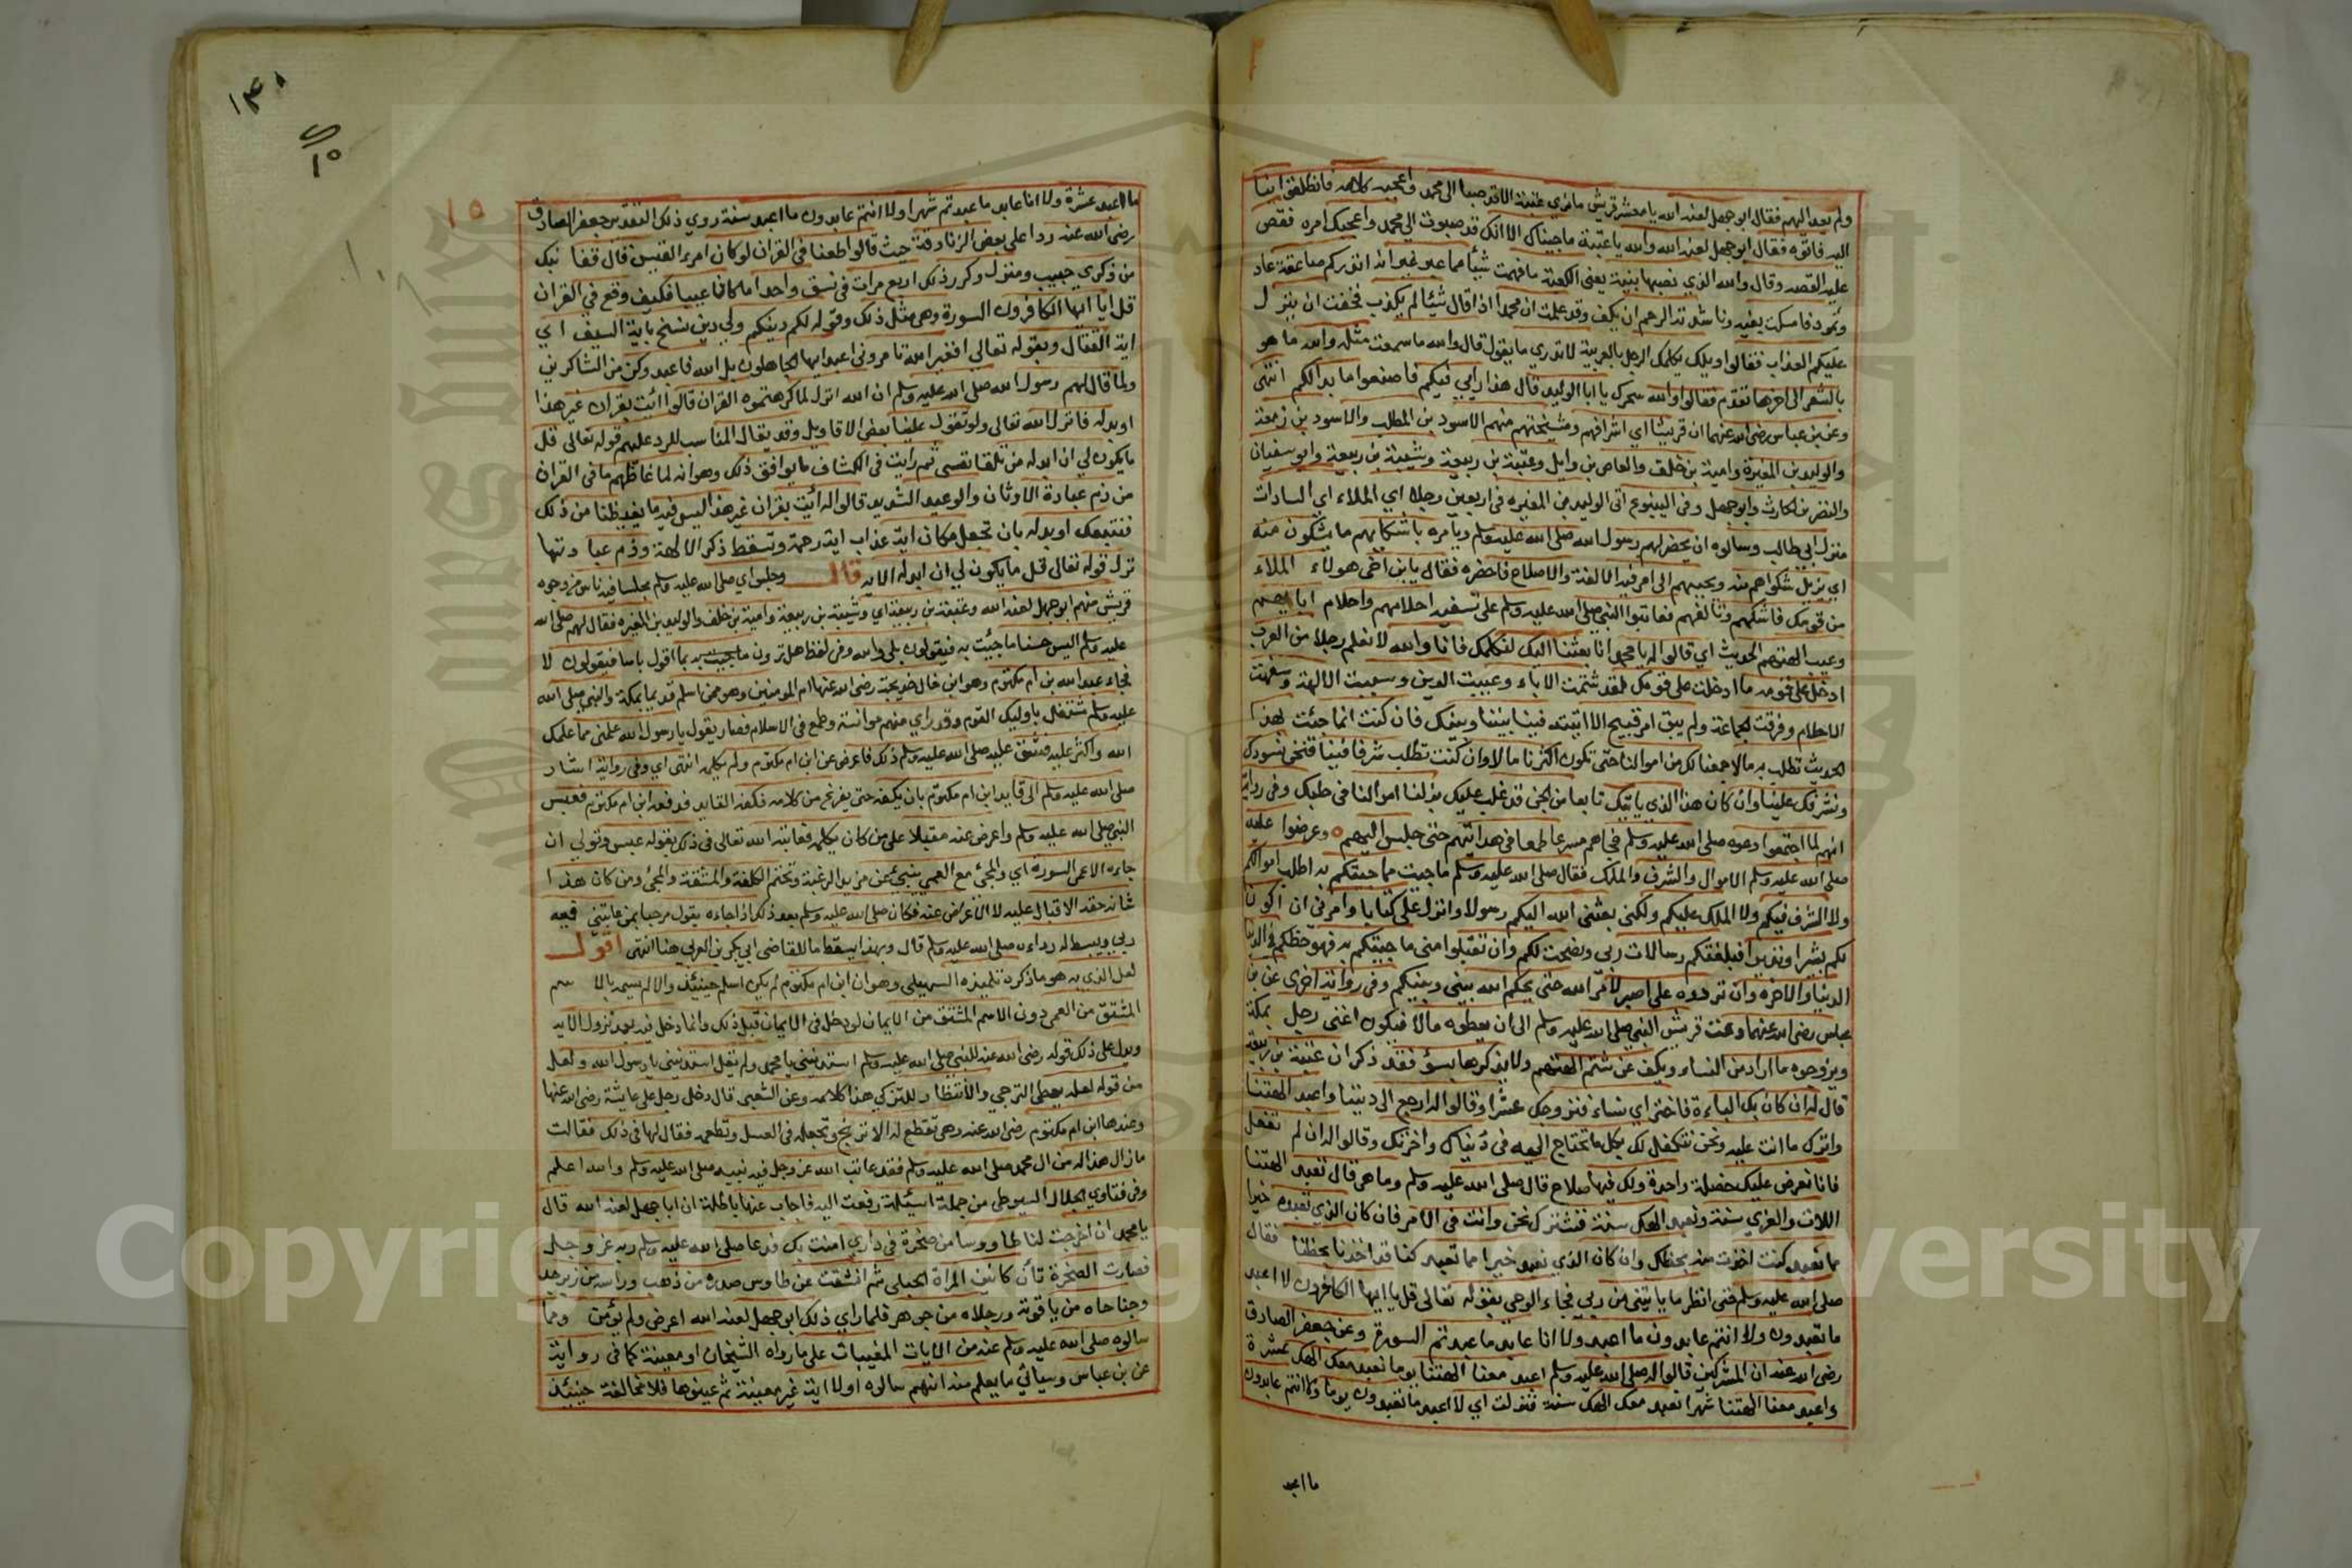 ولم يعد اليهم فقال ابو جهل لعنه الله يا معشر قريش ما نري عتبة الا قد صبا الى محمد واعجبه كلامه فانطلقوا بنا
اليه فاتوه فقال ابو جهل لعنه الله والله يا عتبة ما جيناك الا انك قد صبوت الى محمد واعجبك امره فقص
عليه القصه وقال والله الذي نصبها بنية يعني الكعبة ما فهمت شيئا مما غير انه انذركم صاعقة عاد
وثمود فامسكت بفيه وناشدته الرحم ان يكف وقد علمت ان محمدا اذا قال شيئا لم يكذب فخفت ان ينزل
عليكم العذاب فقالوا ويلك يكلمك الرجل بالعربية لا تدري ما يقول قال والله ما سمعت مثله والله ما هو
بالشعر الى اخرها تقدم فقالوا والله سحرك يا ابا الوليد قال هذا رايي فيكم فاصنعوا ما بدا لكم انتهى
وعن بن عباس رضي الله عنهما ان قريشا اي اشرافهم ومشيختهم منهم الاسود بن المطلب والاسود بن زمعة
والوليد بن المغيرة وامية بن خلف والعاص بن وايل وعتبة بن ربيعة وشيبة بن ربيعة وابو سفيان
والنضر بن الحارث وابو جهل وفى الينبوع اتى الوليد بن المغيره فى اربعين رجلا اي الملاء اي السادات
منزل ابي طالب وسالوه ان يحضر لهم رسول الله صلى الله عليه وسلم ويامره باشكايهم ما يشكون منه
اي يزيل شكواهم منه ويجيبهم الى امر فيه الالفة والاصلاح فاحضره فقال يا بن اخى هولاء الملاء
من قومك فاشكهم وتالفهم فعاتبوا النبي صلى الله عليه وسلم على تسفيه احلامهم واحلام ابايهم
وعيب الهتهم الحديث اي قالوا له يا محمد انا بعثنا اليك لنكلمك فانا والله لا نعلم رجلا من العرب
ادخل على قومه ما ادخلت على قومك لقد شتمت الاباء وعيبت الدين وسببت الالهة وسفهت
الاحلام وفرقت الجماعة ولم يبق امر قبيح الا اتيته فيما بيننا وبينك فان كنت انما جئت بهذا
الحديث تطلب به مالا جمعنا لك من اموالنا حتى تكون اكثرنا مالا وان كنت تطلب شرفا فينا فنحن نسودك
ونشرفك علينا وان كان هذا الذي ياتيك تابعا من الجن قد غلب عليك بذلنا اموالنا فى طبك وفى رواية
انهم لما اجتمعوا دعوه صلى الله عليه وسلم فجاهم مسرعا طمعا فى هدايتهم حتى جلس اليهم ٥ وعرضوا عليه
صلى الله عليه وسلم الاموال والشرف والملك فقال صلى الله عليه وسلم ما جيت مما جيتكم به اطلب اموالكم
ولا الشرف فيكم ولا الملك عليكم ولكن بعثنى الله اليكم رسولا وانزل على كتابا وامرنى ان اكون
لكم بشيرا ونذيرا فبلغتكم رسالات ربي ونصحت لكم وان تقبلوا منى ما جيتكم به فهو حظكم فى الدنيا
الدنيا والاخره وان تردوه على اصبر لامر الله حتى يحكم الله بينى وبينكم وفى رواية اخرى عن بن
عباس رضي الله عنهما دعت قريش النبي صلى الله عليه وسلم الى ان يعطوه مالا فيكون اغنى رجل بمكة
ويزوجوه ما اراد من النساء ويكف عن شتم الهتهم ولا يذكرها بسوء فقد ذكر ان عتبة بن ربيعة
قال له ان كان بك الباءة فاختر اي نساء فنزوجك عشرا وقالوا له ارجع الى ديننا واعبد الهتنا
واترك ما انت عليه ونحن نتكفل لك بكل ما تحتاج اليه فى دنياك واخرتك وقالوا له ان لم تفعل
فانا نعرض عليك خصلة واحدة ولك فيها صلاح قال صلى الله عليه وسلم وما هى قال تعبد الهتنا
اللات والعزي سنة ونعبد الهك سنة فنشترك نحن وانت فى الامر فان كان الذي نعبده خيرا
مما تعبد كنت اخذت منه بحظك وان كان الذي تعبد خيرا مما نعبد كنا قد اخذنا بحظنا فقال
صلى الله عليه وسلم حتى انظر ما ياتينى من ربي فجاء الوحي بقوله تعالى قل يا ايها الكافرون لا اعبد
ما تعبدون ولا انتم عابدون ما اعبد ولا انا عابد ما عبدتم السورة وعن جعفر الصادق
رضي الله عنه ان المشركين قالوا له صلى الله عليه وسلم اعبد معنا الهتنا يوما نعبد معك الهك عشرة
واعبد معنا الهتنا شهرا نعبد معك الهك سنة فنزلت اي لا اعبد ما تعبدون يوما ولا انتم عابدون
ما اعبد
١٤٠
١٥
١٥
ما اعبد عشرة ولا انا عابد ما عبدتم شهرا ولا انتم عابدون ما اعبد سنة روي ذلك التقدير جعفر الصادق
رضي الله عنه ردا على بعض الزنادقة حيث قالوا طعنا فى القران لو كان امرء القيس قال قفا نبك
من ذكري حبيب ومنزل وكرر ذلك اربع مرات فى نسق واحد اما كان عيبا فكيف وقع فى القران
قل يا ايها الكافرون السورة وهى مثل ذلك وقوله لكم دينكم ولي دين نسخ باية السيف اي
اية القتال وبقوله تعالى افغير الله تامرونى اعبد ايها الجاهلون بل الله فاعبد وكن من الشاكرين
ولما قال لهم رسول الله صلى الله عليه وسلم ان الله انزل لما كرهتموه القران قالوا ائت بقران غير هذا
او بدله فانزل الله تعالى ولو تقول علينا بعض الاقاويل وقد يقال المناسب للرد عليهم قوله تعالى قل
ما يكون لي ان ابدله من تلقا نفسى ثم رايت فى الكشاف ما يوافق ذلك وهو انه لما غاظهم ما فى القران
من ذم عبادة الاوثان والوعيد الشديد قالوا له ائت بقران غير هذا ليس فيه ما يغيظنا من ذلك
فنتبعك او بدله بان تجعل مكان اية عذاب اية رحمة وتسقط ذكر الالهة وذم عبادتها
نزل قوله تعالى قل ما يكون لي ان ابدله الايه قال وجلس اي صلى الله عليه وسلم مجلسا فيه ناس من وجوه
قريش منهم ابو جهل لعنه الله وعتبة بن ربيعة اي وشيبة بن ربيعة وامية بن خلف والوليد بن المغيره فقال لهم صلى الله
عليه وسلم اليس حسنا ما جئت به فيقولون بلى والله وفى لفظ هل ترون بما اقول باسا فيقولون لا
فجاء عبد الله بن ام مكتوم وهو ابن خال خديجة رضي الله عنها ام المومنين وهو ممن اسلم قديما بمكة والنبي صلى الله
عليه وسلم مشتغل باوليك القوم وقد راي منهم موانسة وطمع فى الاسلام فصار يقول يا رسول الله علمنى مما علمك
الله واكثر عليه فشق عليه صلى الله عليه وسلم ذلك فاعرض عن ابن ام مكتوم ولم يكلمه انتهى اي وفى رواية اشار
صلى الله عليه وسلم الى قايد ابن ام مكتوم بان يكفه حتى يفرغ من كلامه فكفه القايد فدفعه ابن ام مكتوم فعبس
النبي صلى الله عليه وسلم واعرض عنه مقبلا على من كان يكلمه فعاتبه الله تعالى فى ذلك بقوله عبس وتولي ان
جاءه الاعمى السورة اي والمجئ مع العمي ينبئ عن مزيد الرغبة وتجشم الكلفة والمشقة والمجئ ومن كان هذا
شانه حقه الاقبال عليه لا الاعراض عنه فكان صلى الله عليه وسلم بعد ذلك اذا جاءه يقول مرحبا بمن عاتبنى فيه
ربي ويبسط له رداءه صلى الله عليه وسلم قال وبهذا يسقط ما للقاضى ابي بكر بن العربي هنا انتهى اقول
لعل الذي له هو ما ذكره تلميذه السهيلي وهو ان ابن ام مكتوم لم يكن اسلم حينئذ والا لم يسمه بالاسم
المشتق من العمى دون الاسم المشتق من الايمان لو دخل فى الايمان قبل ذلك وانما دخل فيه بعد نزول الايه
ويدل على ذلك قوله رضي الله عنه للنبي صلى الله عليه وسلم استدنينى يا محمد ولم يقل استدنينى يا رسول الله ولعل
من قوله لعله يعطى الترجي والانتظار للتزكي هذا كلامه وعن الشعبى قال دخل رجل على عايشة رضي الله عنها
وعندها ابن ام مكتوم رضي الله عنه وهى تقطع له الاترنج وتجعله فى العسل وتطعمه فقال لها فى ذلك فقالت
ما زال هذا له من ال محمد صلى الله عليه وسلم فقد عاتب الله عز وجل فيه نبيه صلى الله عليه وسلم والله اعلم
وفى فتاوي الجلال السيوطى من جملة اسئلة رفعت اليه فاجاب عنها باطلة ان ابا جهل لعنه الله قال
يا محمد ان اخرجت لنا طاووسا من صخرة فى داري امنت بك فدعا صلى الله عليه وسلم ربه عز وجل
فصارت الصخرة تأن كانين المراة الحبلى ثم انشقت عن طاوس صدره من ذهب وراسه من زبرجد
وجناحاه من ياقوتة ورجلاه من جوهر فلما راي ذلك ابو جهل لعنه الله اعرض ولم يؤمن ومما
سالوه صلى الله عليه وسلم عنه من الايات المغيبات على ما رواه الشيخان او معينة كما فى رواية
عن بن عباس وسيأتي ما يعلم منه انهم سالوه اولا اية غير معينة ثم عينوها فلا مخالفة حينئذ
Copyright © King Saud University